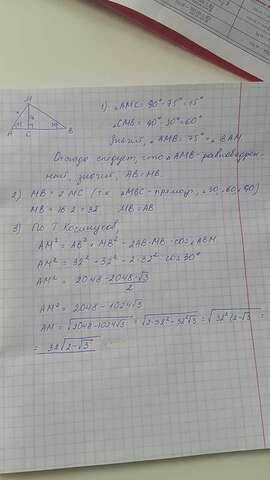 M
A C B
1) ∠AMC = 90° - 75° = 15°
∠CMB = 90° - 30° = 60°
Значит, ∠AMB = 75° = ∠BAM
Отсюда следует, что △AMB - равнобедрен-
ный, значит, AB = MB.
2) MB = 2 MC (т.к. △MBC - прямоуг., 30, 60, 90)
MB = 16·2 = 32 MB = AB
3) По Т. Косинусов,
AM² = AB² + MB² - 2AB·MB·cos∠ABM
AM² = 32² + 32² - 2·32²·cos 30°
AM² = 2048 - 2048·√3
2
AM² = 2048 - 1024√3
AM = √2048 - 1024√3 = √2·32² - 32²√3 = √32²(2-√3 =
= 32√2-√3